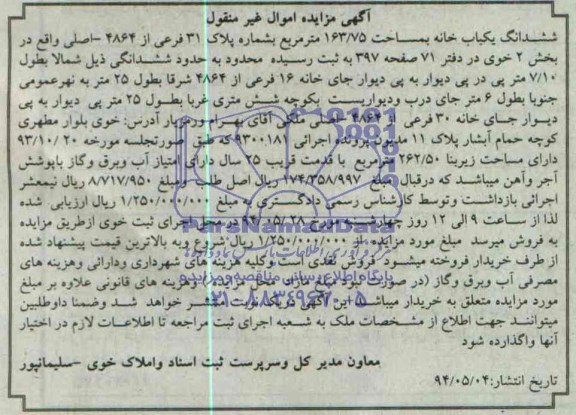 آگهی مزایده اموال غیر منقول
ششدانگ یکباب خانه بمساحت ۱۶۳/۷۵ مترمربع بشماره پلاک ۳۱ فرعی از ۴۸۶۴ -اصلی واقع در
بخش ۲ خوی در دفتر ۷۱ صفحه ۳۹۷ به ثبت رسیده محدود به حدود ششدانگی ذیل شمالا بطول
۷/۱۰ متر پی در پی دیوار به پی دیوار جای خانه ۱۶ فرعی از ۴۸۶۴ شرقا بطول ۲۵ متر به نهرعمومی
جنوبا بطول ۶ متر جای درب ودیواریست بکوچه شش متری غربا بطول ۲۵ متر پی دیوار به پی
دیوار جای خانه ۳۰ فرعی از ۴۸۶۴ -اصلی ملکی آقای بهرام ورمزیار آدرس: خوی بلوار مطهری
کوچه حمام آبشار پلاک ۱۱ مدیون پرونده اجرائی ۹۳۰۰۱۸۱ که طبق صورتجلسه مورخه ۹۳/۱۰/۲۰
دارای مساحت زیربنا ۲۶۲/۵۰ مترمربع با قدمت قریب ۲۵ سال دارای امتیاز آب وبرق وگاز باپوشش
آجر وآهن میباشد که درقبال مبلغ ۱۷۴/۳۵۸/۹۹۷ ریال اصل طلب ومبلغ ۸/۷۱۷/۹۵۰ ریال نیمعشر
اجرائی بازداشت وتوسط کارشناس رسمی دادگستری به مبلغ ۱/۲۵۰/۰۰۰/۰۰۰ ریال ارزیابی شده
لذا از ساعت ۹ الی ۱۲ روز چهارشنبه مورخ ۹۴/۰۵/۲۸ در محل اجرای ثبت خوی ازطریق مزایده
به فروش میرسد مبلغ مورد مزایده از ۱/۲۵۰/۰۰۰/۰۰۰ ریال شروع وبه بالاترین قیمت پیشنهاد شده
از طرف خریدار فروخته میشود وفروش نقدی است وکلیه هزینه های شهرداری ودارائی وهزینه های
مصرفی آب وبرق وگاز (در صورت نبود مبلغ مازاد محل مزایده) وهزینه های قانونی علاوه بر مبلغ
مورد مزایده متعلق به خریدار میباشد این آگهی در یک نوبت منتشر خواهد شد وضمنا داوطلبین
میتوانند جهت اطلاع از مشخصات ملک به شعبه اجرای ثبت مراجعه تا اطلاعات لازم در اختیار
آنها واگذارده شود
معاون مدیر کل وسرپرست ثبت اسناد واملاک خوی -سلیمانپور
تاریخ انتشار: ۹۴/۰۵/۰۴
ParsNamadData
پایگاه اطلاع رسانی مناقصه و مزایده
۰۲۱-۸۸۳۴۹۶۷۰-۵